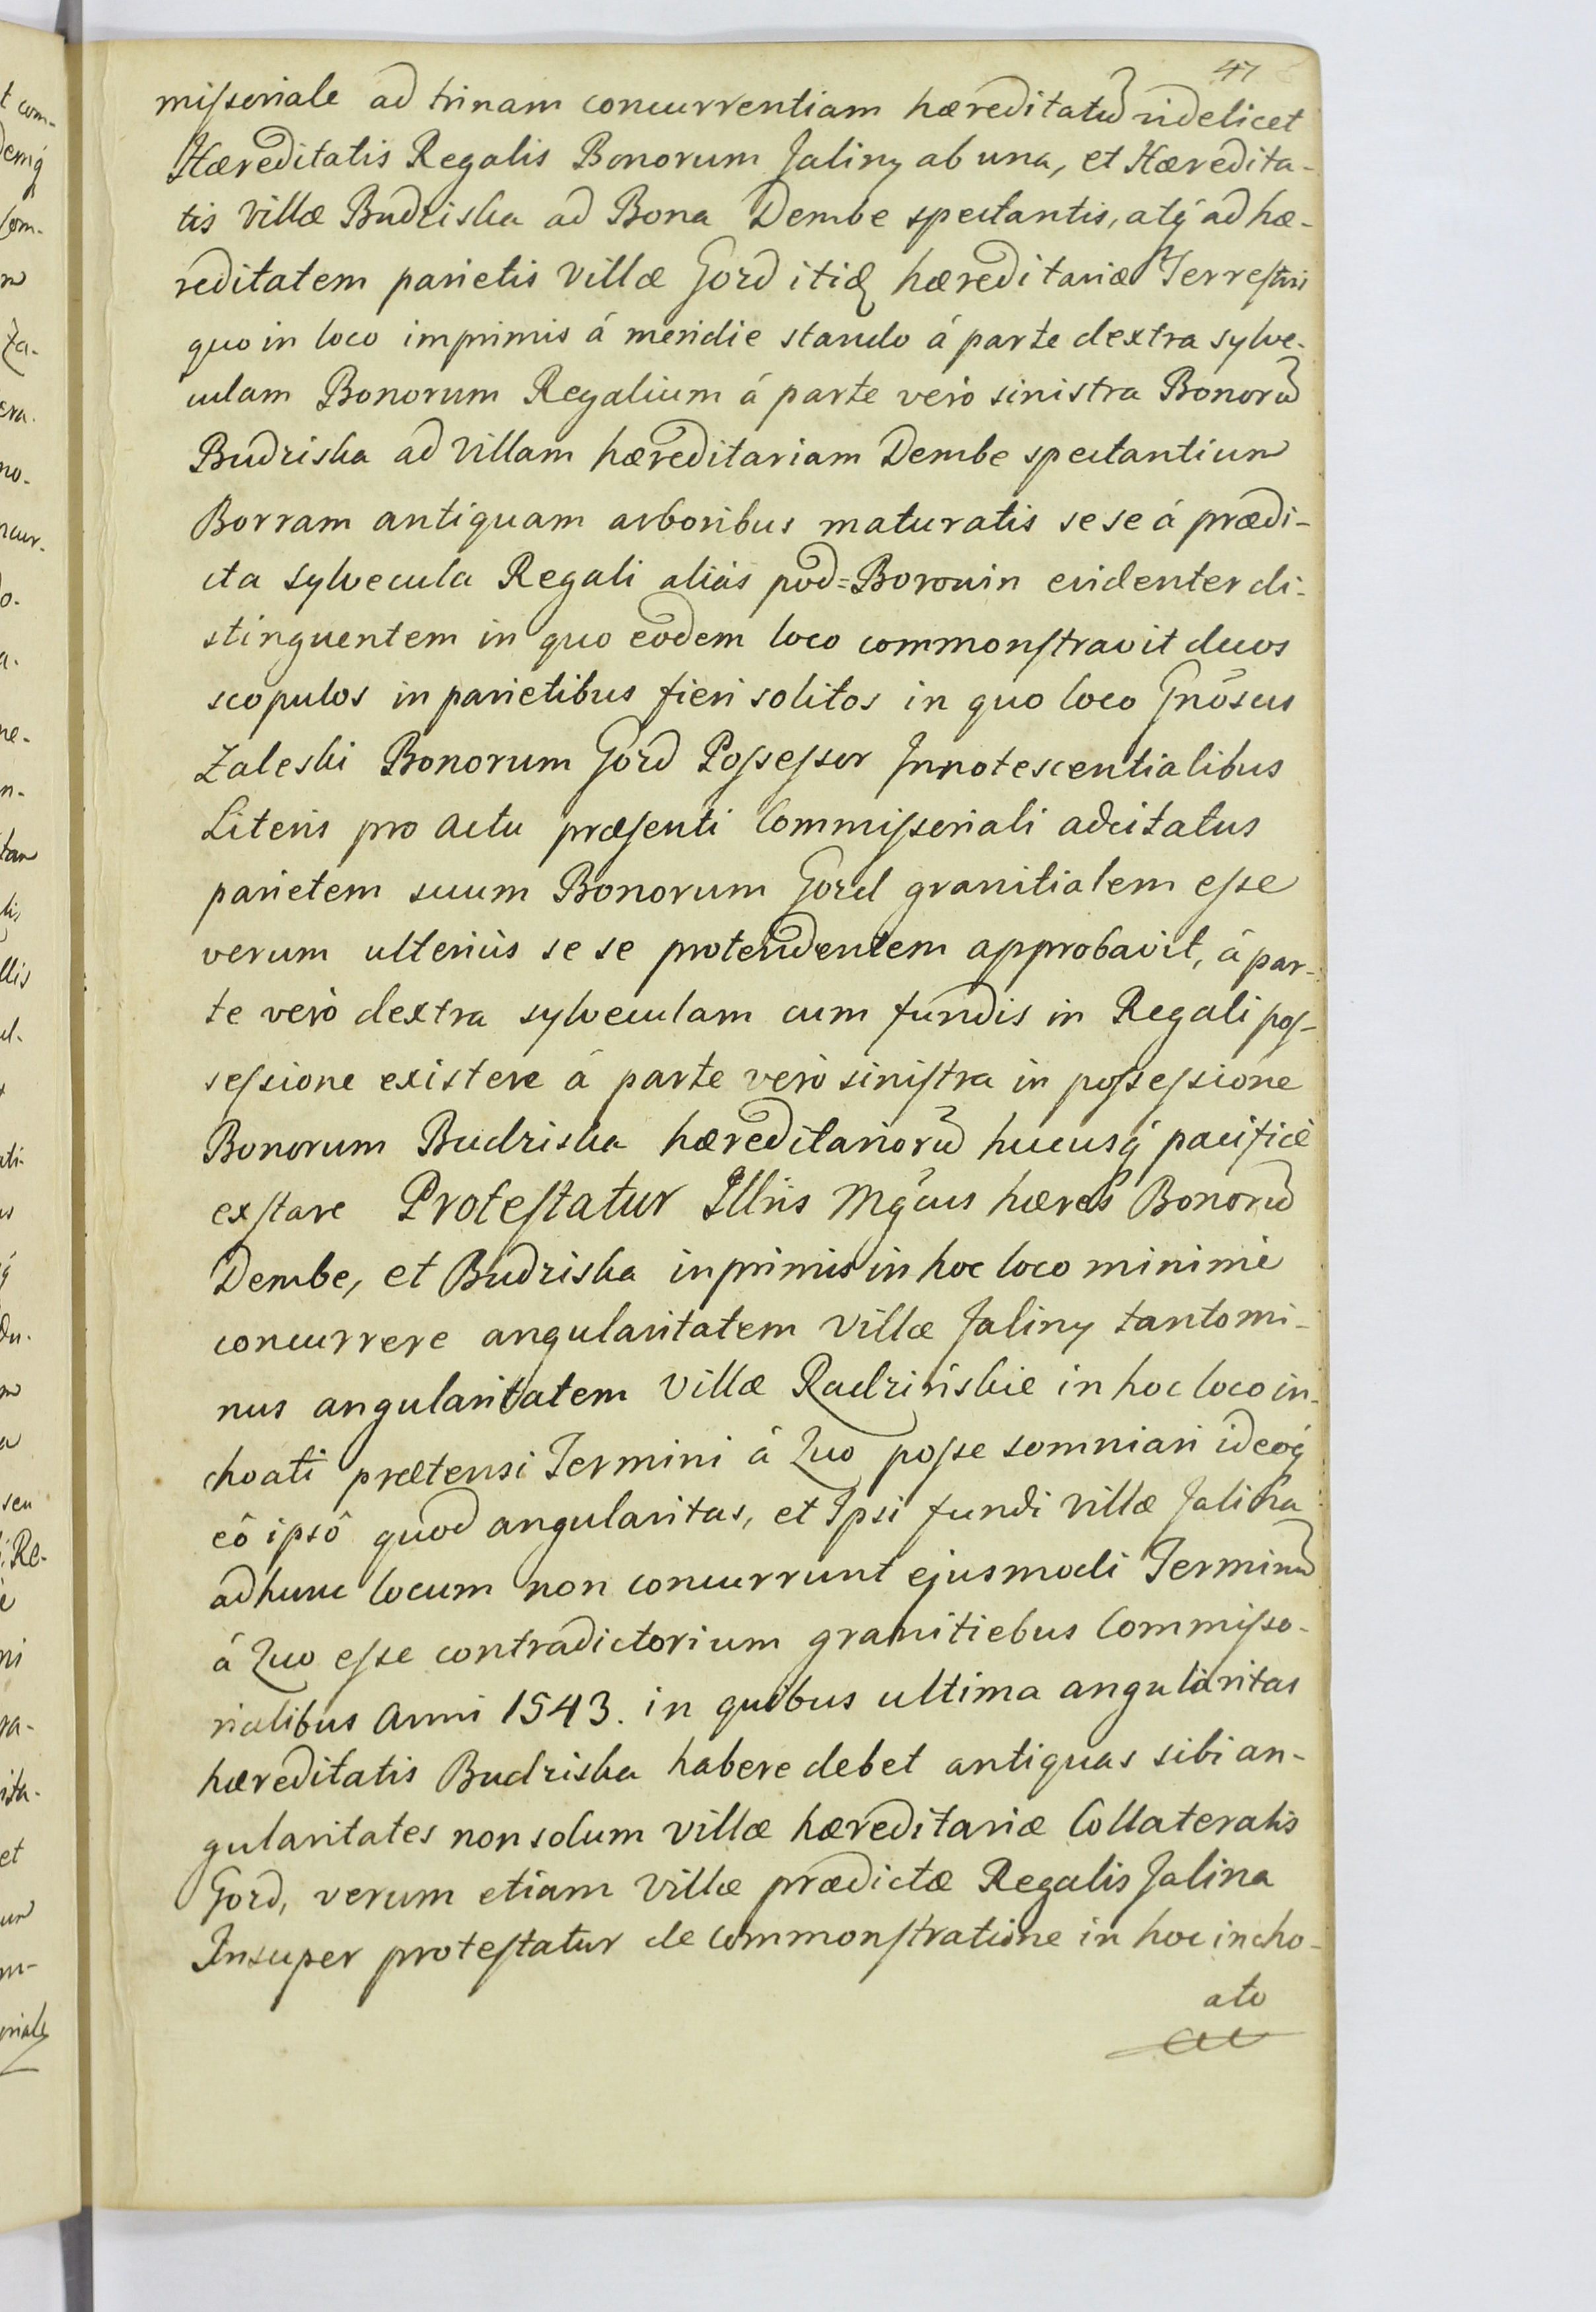 47
misseriale ad trinam concurrentiam hæreditatū videlicet
Hæreditatis Regalis Bonorum Jaliny ab una, et Hæredita-
tis Villæ Budziska ad Bona Dembe spectantis, atq́ ad hæ-
reditatem parietis Villæ Gozd itid hæreditariæ Terrestris
quo in loco imprimis á meridie stando á parte dextra sylve-
culam Bonorum Regalium á parte verò sinistra Bonorū
Budziska ad Villam hæreditariam Dembe spectantium
Borram antiquam arboribus maturatis sese á prædi-
cta Sylvecula Regali aliás pod=Borowin evidenter di-
stinguentem in quo eodem loco commonstravit duos
scopulos in parietibus fieri solitos in quo loco Gnōsus
Zaleski Bonorum Gozd Possessor Innotescentialibus
Literis pro Actu præsenti Commisseriali adcitatus
parietem suum Bonorum Gozd granitialem esse
verum ulteriùs se se protendentem approbavit, á par-
te verò dextra sylveculam cum fundis in Regali pos-
sessione existere á parte verò sinistra in possessione
Bonorum Budziska hæreditariorū hucusq́ pacificè
exstare Protestatur Illris Mgcus hæres Bonorū
Dembe, et Budziska inprimis in hoc loco minimè
concurrere angularitatem Villæ Jaliny tantomi-
nus angularitatem Villæ Radzińskie in hoc loco in-
choati prætensi Termini á Quo posse somniari ideoq́
eô ipsô quod angularitas, et Ipsi fundi Villæ Jalina
ad hunc locum non concurrunt ejusmodi Terminū
á Quo esse contradictorium granitiebus Commisso-
rialibus Anni 1543. in quibus ultima angularitas
hæreditatis Budziska habere debet antiquas sibi an-
gularitates non solum Villæ hæreditariæ Collateralis
Gozd, verum etiam Villæ prædictæ Regalis Jalina
Insuper protestatur de Commonstratione in hoc incho-
ato